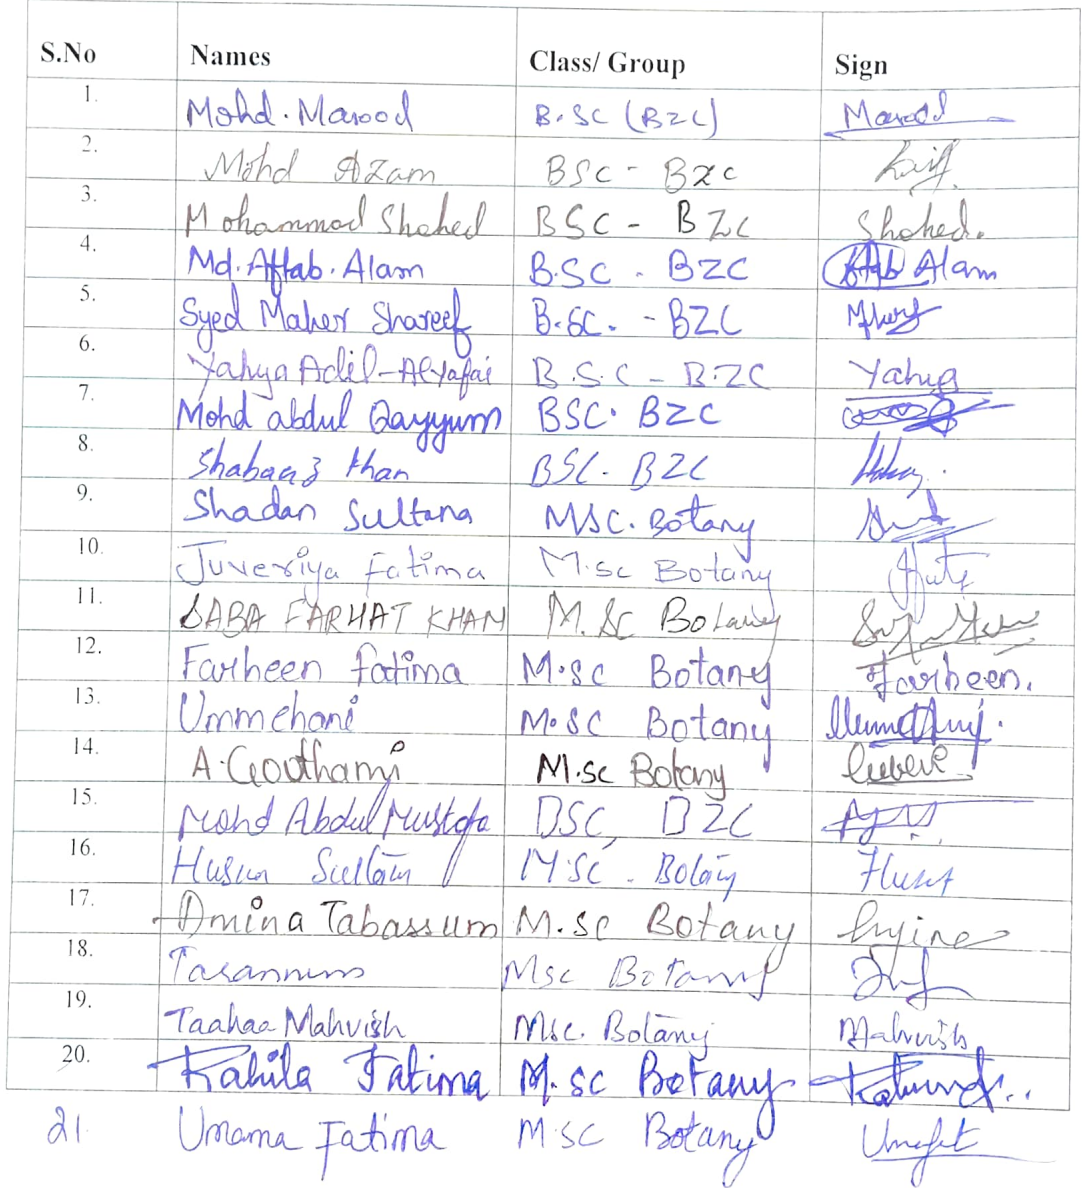 S.No Names Class/ Group Sign
1. Mohd. Marood B.SC (BZC) Marood
2. Mohd Azam BSC - BZC
3. Mohammad Shahed BSC - BZC Shahed.
4. Md. Aftab. Alam B.SC - BZC Aftab Alam
5. Syed Maher Shareef B.SC. - BZC
6. Yahya Adil-Al-yafai B.S.C - B.ZC Yahya
7. Mohd abdul Qayyum BSC. BZC
8. Shabaaz khan BSC. BZC
9. Shadan Sultana MSC. Botany
10. Juveriya fatima M.sc Botany
11. SABA FARHAT KHAN M.Sc Botany
12. Farheen fatima M.SC Botany Farheen.
13. Ummehani M.SC Botany
14. A. Gouthami M.sc Botany
15. Mohd Abdul Mustafa BSC, BZC
16. Sultan MSC. Botany
17. Amina Tabassum M.SC Botany
18. Tarannum Msc Botany
19. Taahaa Mahvish Msc. Botany Mahvish
20. Kahila Fatima M.sc Botany
21 Umama Fatima M.SC Botany